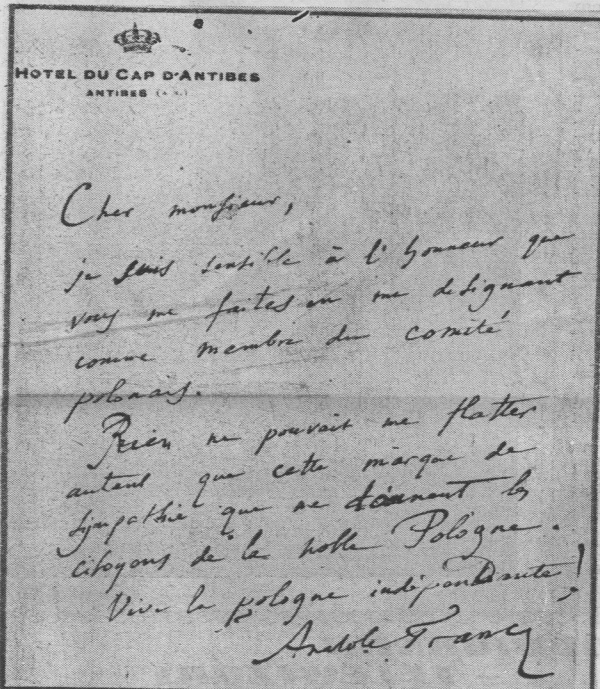 HOTEL DU CAP D'ANTIBES
ANTIBES (A.M.)
Cher monsieur,
je suis sensible à l'honneur que
vous me faites en me désignant
comme membre du comité
polonais.
Rien ne pouvait me flatter
autant que cette marque de
sympathie que me donnent les
citoyens de la noble Pologne.
Vive la pologne indépendante!
Anatole France